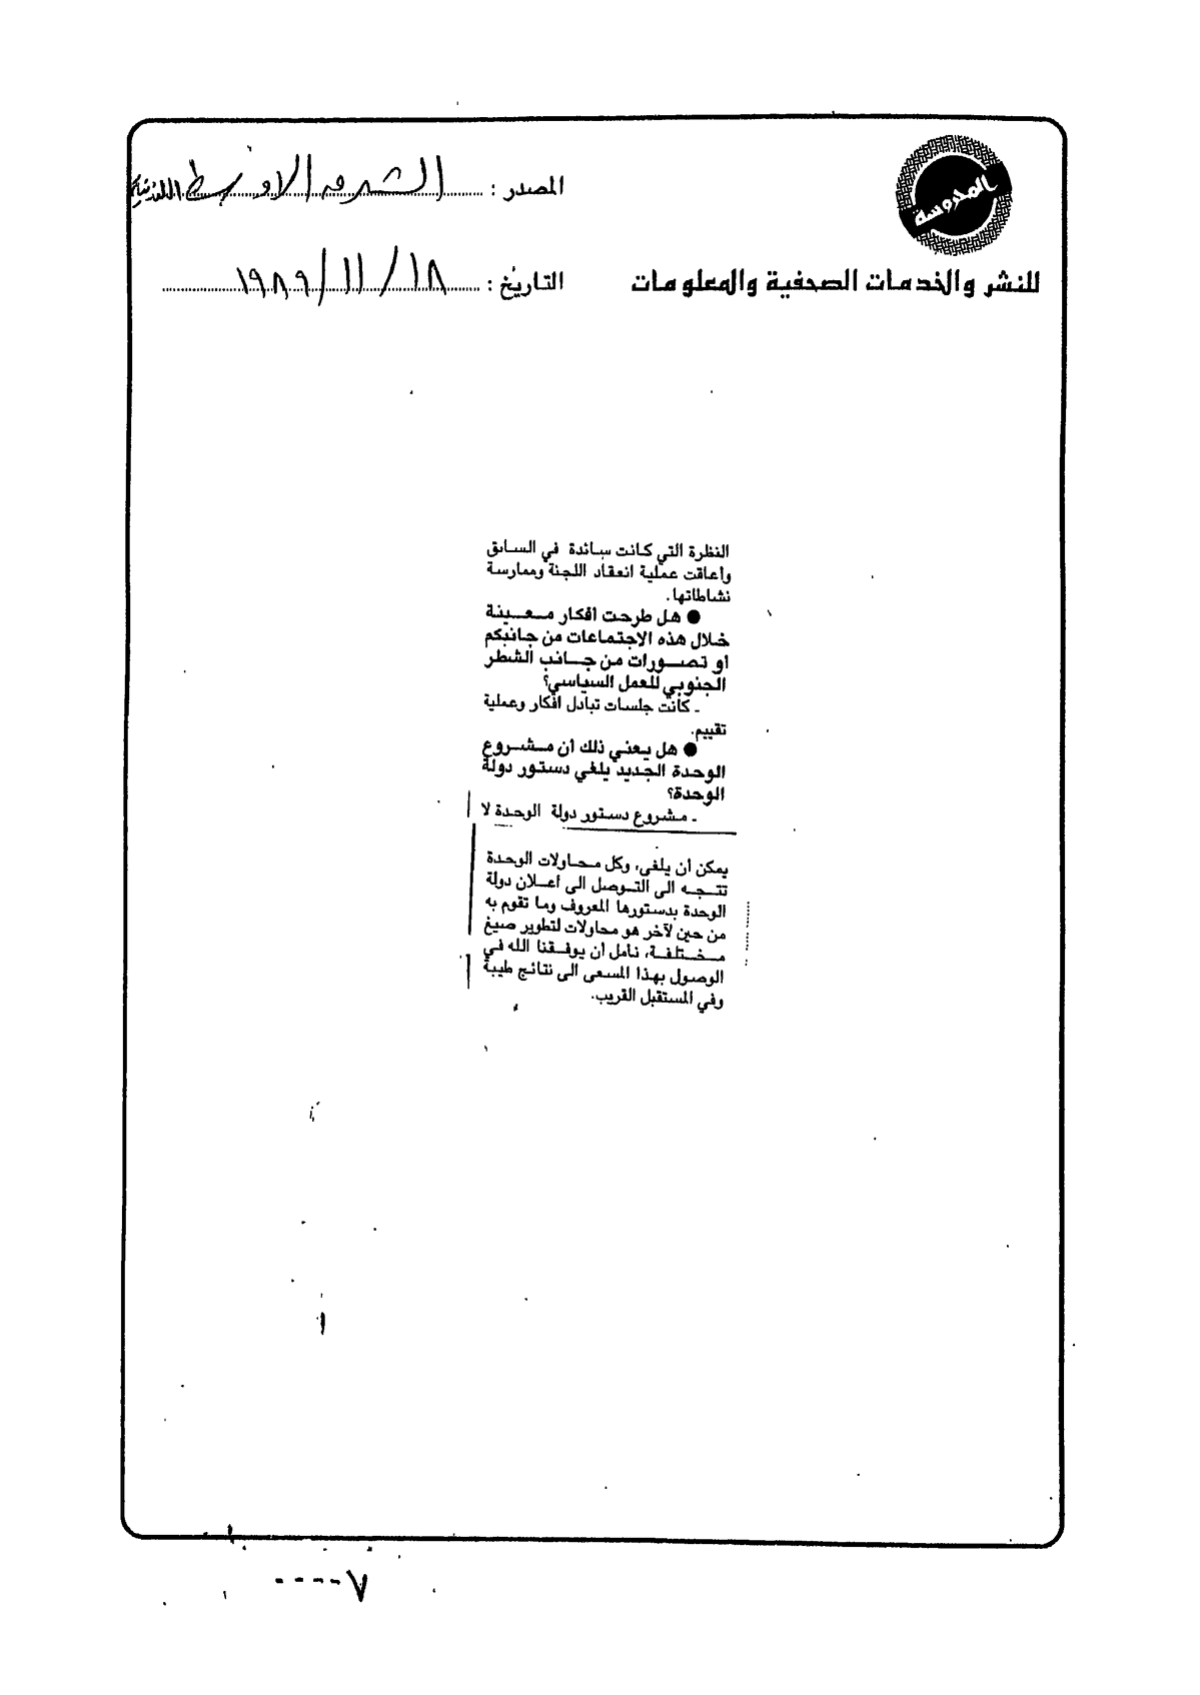 المحروسة
للنشر والخدمات الصحفية والمعلومات
المصدر : الشرق الاوسط اللندنية
التاريخ : ١٨ / ١١ / ١٩٨٩
النظرة التي كانت سائدة في السابق
وأعاقت عملية انعقاد اللجنة وممارسة
نشاطاتها.
● هل طرحت افكار معينة
خلال هذه الاجتماعات من جانبكم
او تصورات من جانب الشطر
الجنوبي للعمل السياسي؟
ـ كانت جلسات تبادل افكار وعملية
تقييم.
● هل يعني ذلك أن مشروع
الوحدة الجديد يلغي دستور دولة
الوحدة؟
ـ مشروع دستور دولة الوحدة لا
يمكن أن يلغى، وكل محاولات الوحدة
تتجه الى التوصل الى اعلان دولة
الوحدة بدستورها المعروف وما تقوم به
من حين لآخر هو محاولات لتطوير صيغ
مختلفة، نامل أن يوفقنا الله في
الوصول بهذا المسعى الى نتائج طيبة
وفي المستقبل القريب.
٧----